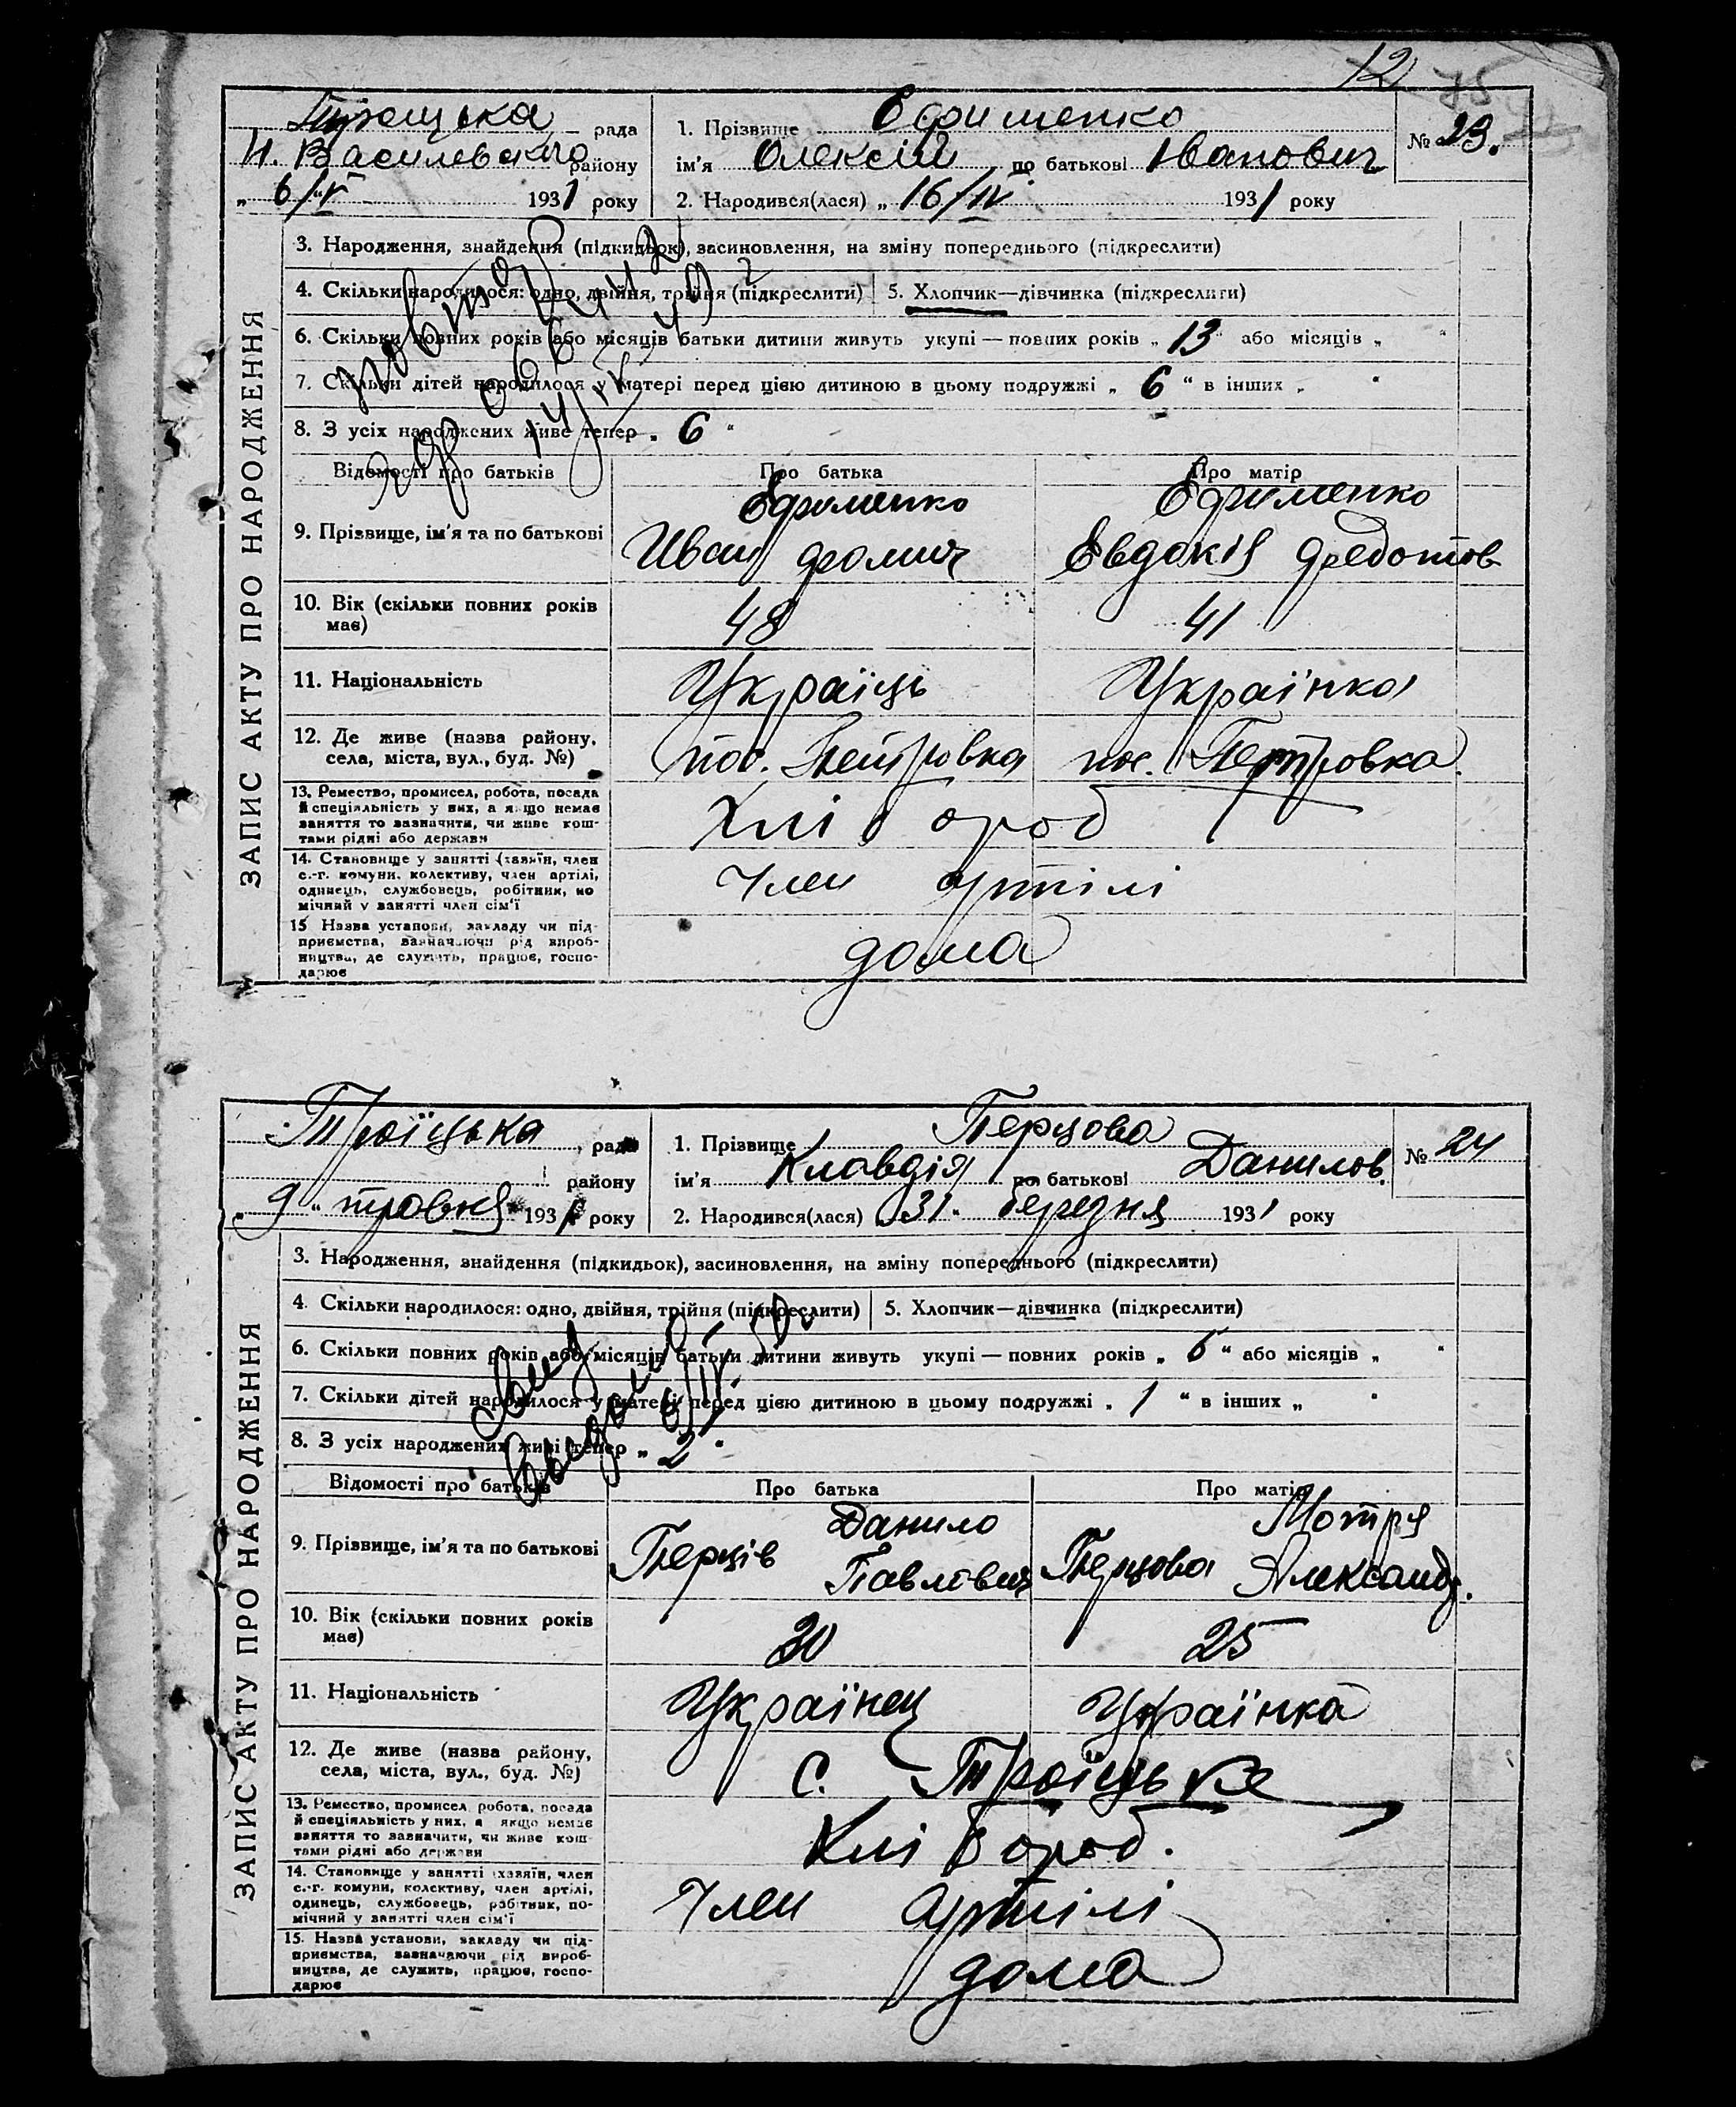 12 75
Троицька рада
Н. Василевського району
„ 6/V 1931 року
1. Прізвище Ефименко
ім'я Олексій по батькові Іванович
2. Народився(лася) „ 16/IV 1931 року
№ 23.
ЗАПИС АКТУ ПРО НАРОДЖЕННЯ
3. Народження, знайдення (підкидьок), засиновлення, на зміну попереднього (підкреслити)
4. Скільки народилося: одно, двійня, трійня (підкреслити) 5. Хлопчик—дівчинка (підкреслити)
6. Скільки повних років або місяців батьки дитини живуть укупі — повних років „ 13 " або місяців „ "
7. Скільки дітей народилося у матері перед цією дитиною в цьому подружжі „ 6 " в інших „ "
8. З усіх народжених живе тепер „ 6 "
повтор
Відомості про батьків Про батька Про матір
9. Прізвище, ім'я та по батькові Ефименко Иван фомич Ефименко Евдокія Федотов
10. Вік (скільки повних років має) 48 41
11. Національність Україць Українка
12. Де живе (назва району, села, міста, вул., буд. №) пос. Петровка пос. Петровка
13. Ремество, промисел, робота, посада
й спеціяльність у них, а якщо немає
заняття то зазначити, чи живе кош-
тами рідні або держави
Хлібороб
14. Становище у занятті (хазяїн, член
с.-г. комуни, колективу, член артілі,
одинець, службовець, робітник, по
мічний у занятті член сім'ї
Член артілі
15 Назва установи, закладу чи під-
приємства, зазначаючи рід вироб-
ництва, де служить, працює, госпо-
дарює
дома
Троїцька рада
району
„ 9 " травня 1931 року
1. Прізвище Перцова
ім'я Клавдія по батькові Данилов.
2. Народився(лася) „ 31. березня 1931 року
№ 24
ЗАПИС АКТУ ПРО НАРОДЖЕННЯ
3. Народження, знайдення (підкидьок), засиновлення, на зміну попереднього (підкреслити)
4. Скільки народилося: одно, двійня, трійня (підкреслити) 5. Хлопчик—дівчинка (підкреслити)
6. Скільки повних років або місяців батьки дитини живуть укупі — повних років „ 6 " або місяців „ "
7. Скільки дітей народилося у матері перед цією дитиною в цьому подружжі „ 1 " в інших „ "
8. З усіх народжених живі тепер „ 2 "
Відомості про батьків Про батька Про матір
9. Прізвище, ім'я та по батькові Перців Данило Павлович Перцова Мотря Александр.
10. Вік (скільки повних років має) 30 25
11. Національність Українец Українка
12. Де живе (назва району, села, міста, вул., буд. №) с. Троїцьке
13. Ремество, промисел, робота, посада
й спеціяльність у них, а якщо немає
заняття то зазначити, чи живе кош-
тами рідні або держави
Хлібороб.
14. Становище у занятті (хазяїн, член
с.-г. комуни, колективу, член артілі,
одинець, службовець, робітник, по-
мічний у занятті член сім'ї
Член артілі
15. Назва установи, закладу чи під-
приємства, зазначаючи рід вироб-
ництва, де служить, працює, госпо-
дарює
дома